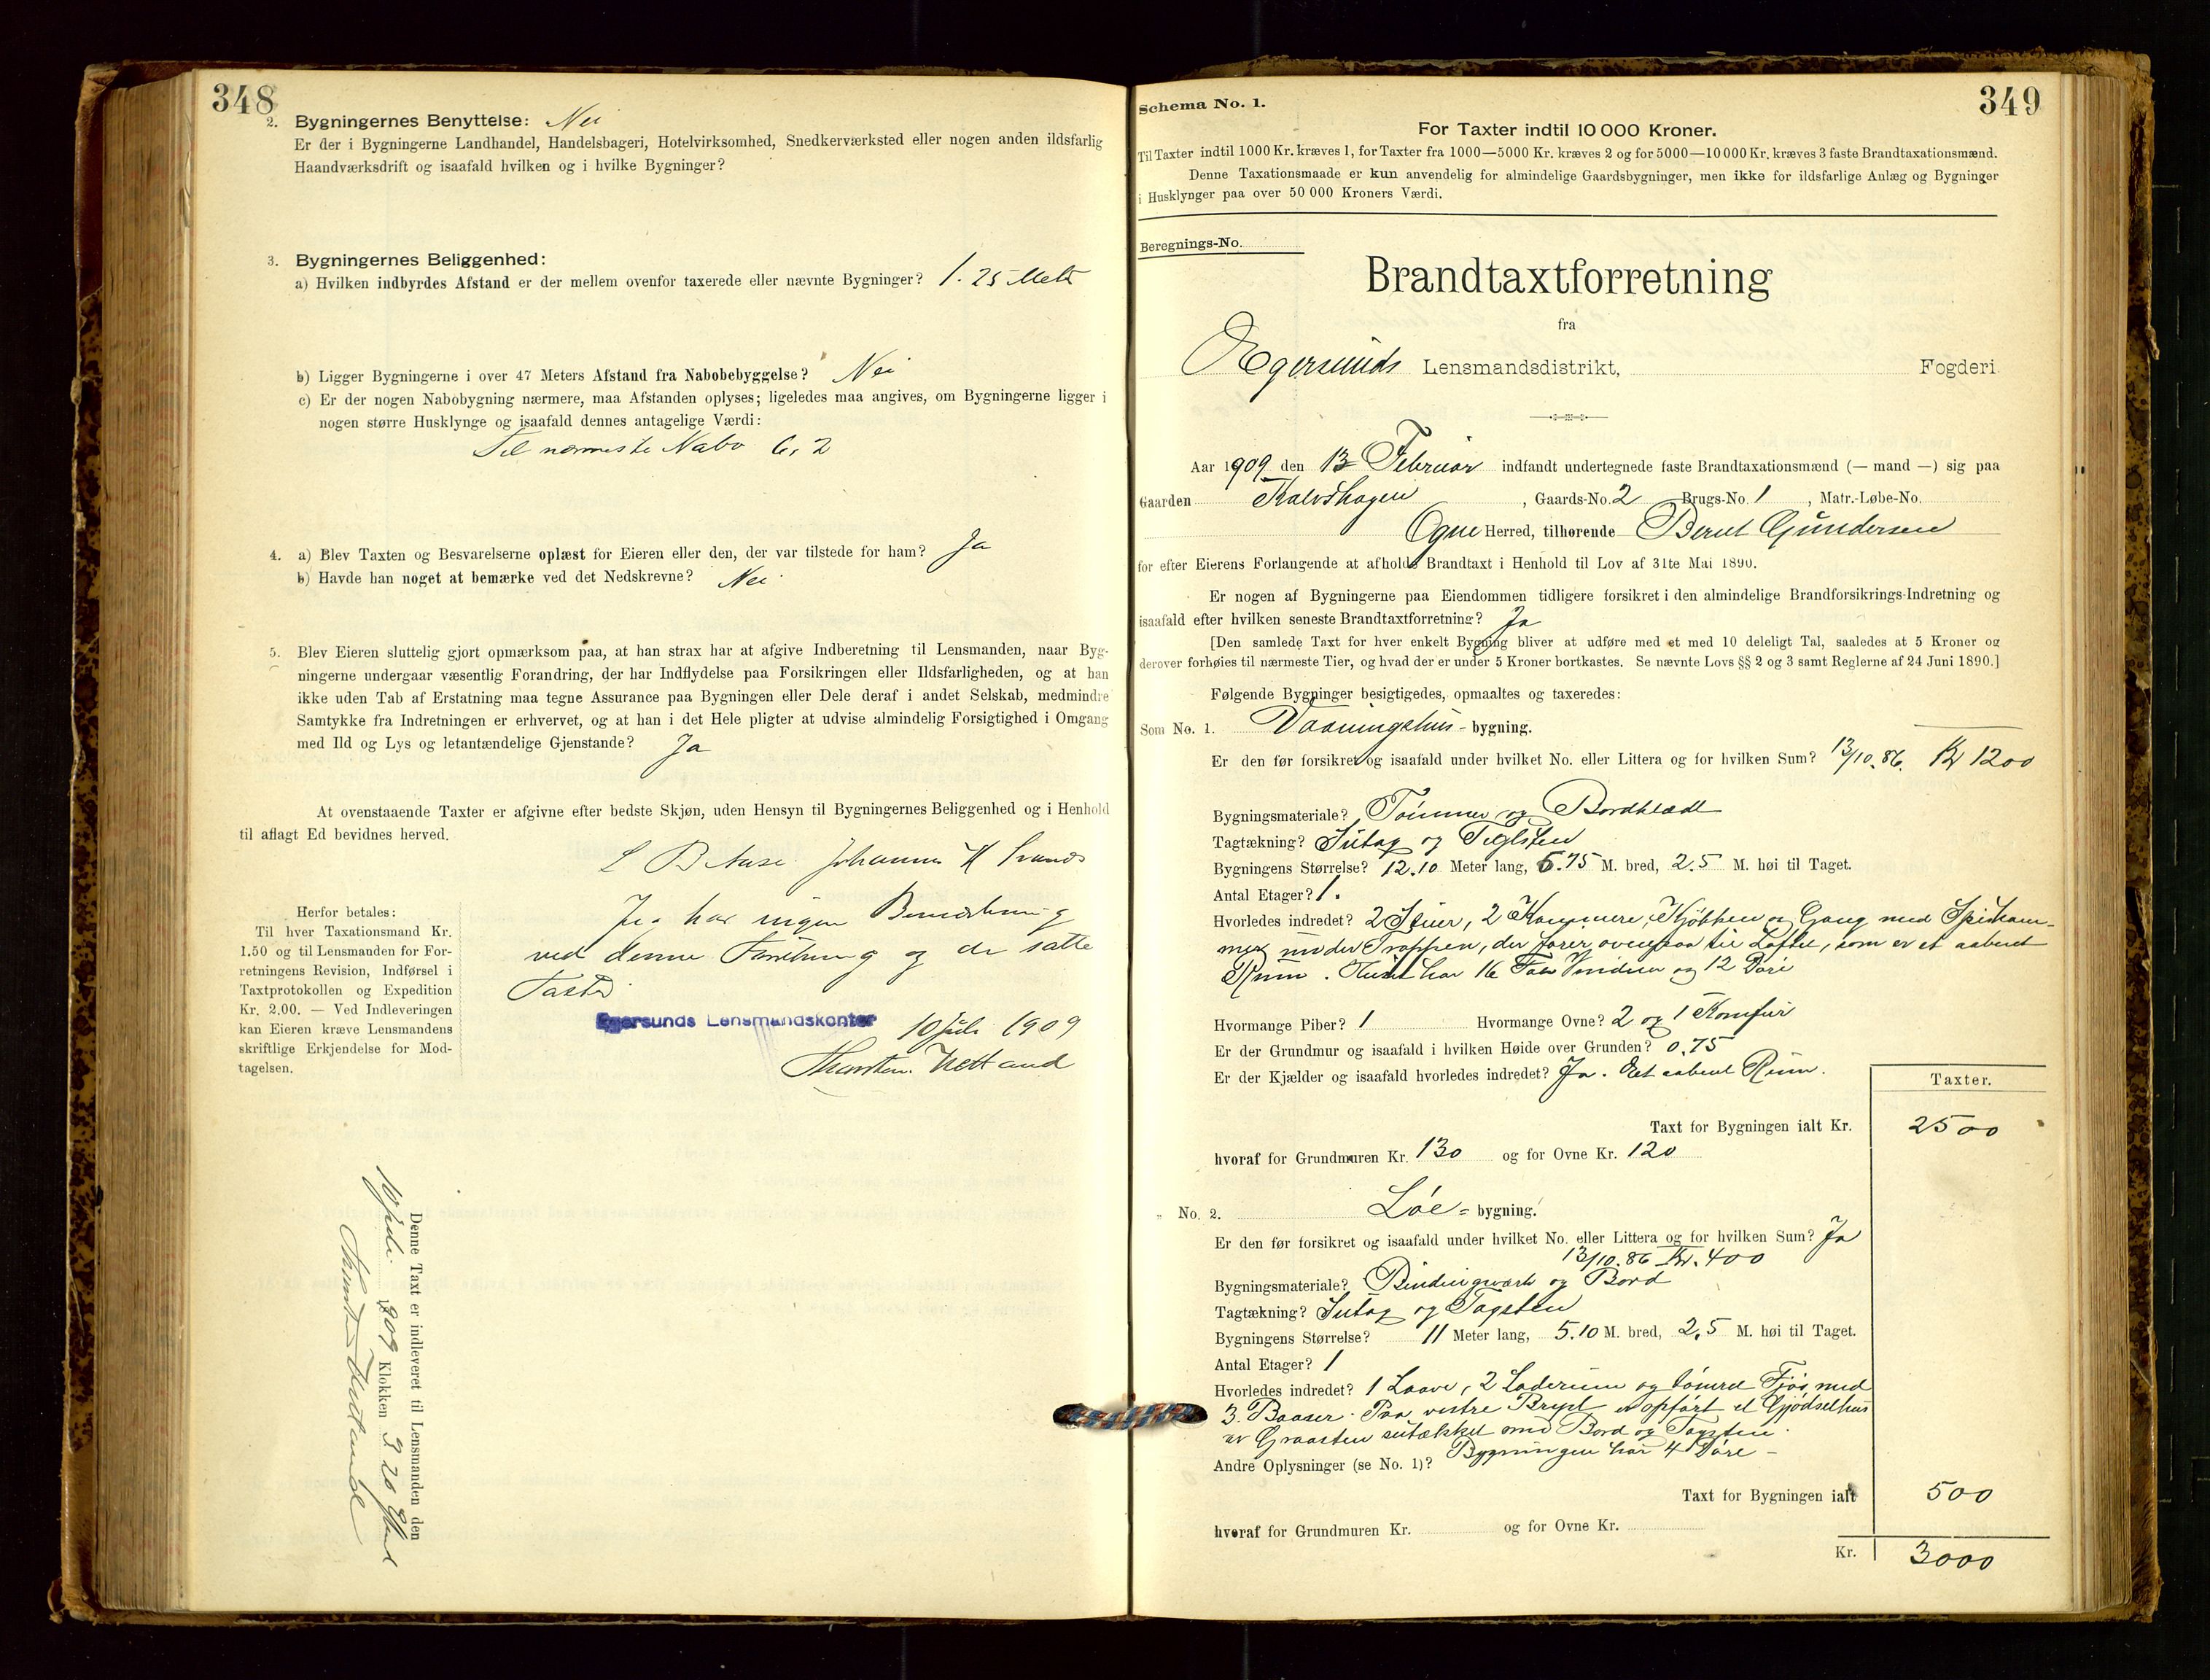 348
2. Bygningernes Benyttelse: Nei
Er der i Bygningerne Landhandel, Handelsbageri, Hotelvirksomhed, Snedkerværksted eller nogen anden ildsfarlig
Haandværksdrift og isaafald hvilken og i hvilke Bygninger?
3. Bygningernes Beliggenhed:
a) Hvilken indbyrdes Afstand er der mellem ovenfor taxerede eller nævnte Bygninger? 1.25 Meter
b) Ligger Bygningerne i over 47 Meters Afstand fra Nabobebyggelse? Nei
c) Er der nogen Nabobygning nærmere, maa Afstanden oplyses; ligeledes maa angives, om Bygningerne ligger i
nogen større Husklynge og isaafald dennes antagelige Værdi:
Til nærmeste Nabo 6,2
4. a) Blev Taxten og Besvarelserne oplæst for Eieren eller den, der var tilstede for ham? Ja
b) Havde han noget at bemærke ved det Nedskrevne? Nei
5. Blev Eieren sluttelig gjort opmærksom paa, at han strax har at afgive Indberetning til Lensmanden, naar Byg-
ningerne undergaar væsentlig Forandring, der har Indflydelse paa Forsikringen eller Ildsfarligheden, og at han
ikke uden Tab af Erstatning maa tegne Assurance paa Bygningen eller Dele deraf i andet Selskab, medmindre
Samtykke fra Indretningen er erhvervet, og at han i det Hele pligter at udvise almindelig Forsigtighed i Omgang
med Ild og Lys og letantændelige Gjenstande? Ja
At ovenstaaende Taxter er afgivne efter bedste Skjøn, uden Hensyn til Bygningernes Beliggenhed og i Henhold
til aflagt Ed bevidnes herved.
L B Aase Johannes H
Herfor betales:
Til hver Taxationsmand Kr.
1.50 og til Lensmanden for For-
retningens Revision, Indførsel i
Taxtprotokollen og Expedition
Kr. 2.00. — Ved Indleveringen
kan Eieren kræve Lensmandens
skriftlige Erkjendelse for Mod-
tagelsen.
Jeg har ingen Bemærkning
ved denne Forretning og de satte
Taxter
Egersunds Lensmandskontor 10 juli 1909
Thorsten
Denne Taxt er indleveret til Lensmanden den
10 juli 1909 Klokken 3 20 Efterm
Thorsten
Schema No. 1.
349
For Taxter indtil 10 000 Kroner.
Til Taxter indtil 1000 Kr. kræves 1, for Taxter fra 1000—5000 Kr. kræves 2 og for 5000—10 000 Kr. kræves 3 faste Brandtaxationsmænd.
Denne Taxationsmaade er kun anvendelig for almindelige Gaardsbygninger, men ikke for ildsfarlige Anlæg og Bygninger
i Husklynger paa over 50 000 Kroners Værdi.
Beregnings-No.
Brandtaxtforretning
fra
Egersunds Lensmandsdistrikt, Fogderi
Aar 1909 den 13 Februar indfandt undertegnede faste Brandtaxationsmænd (— mand —) sig paa
Gaarden Kalvshagen, Gaards-No. 2 Brugs-No. 1, Matr.-Løbe-No.
Ogne Herred, tilhørende Bernt Gundersen
for efter Eierens Forlangende at afholde Brandtaxt i Henhold til Lov af 31te Mai 1890.
Er nogen af Bygningerne paa Eiendommen tidligere forsikret i den almindelige Brandforsikrings-Indretning og
isaafald efter hvilken seneste Brandtaxtforretning? Ja
[Den samlede Taxt for hver enkelt Bygning bliver at udføre med et med 10 deleligt Tal, saaledes at 5 Kroner og
derover forhøies til nærmeste Tier, og hvad der er under 5 Kroner bortkastes. Se nævnte Lovs §§ 2 og 3 samt Reglerne af 24 Juni 1890.]
Følgende Bygninger besigtigedes, opmaaltes og taxeredes:
Som No. 1. Vaaningshus-bygning.
Er den før forsikret og isaafald under hvilket No. eller Littera og for hvilken Sum? 13/10.86. Kr 1200
Bygningsmateriale? Tømmer og Bordklædt
Tagtækning? Sutag og Teglsten
Bygningens Størrelse? 12.10 Meter lang, 6.75 M. bred, 2.5 M. høi til Taget.
Antal Etager? 1.
Hvorledes indredet? 2 Stuer, 2 Kammere, Kjøkken og Gang med Spiskam-
mer under Trappen, der fører ovenpaa til Loftet, som er et aabent
Rum. Huset har 16 Fag Vinduer og 12 Døre
Hvormange Piber? 1 Hvormange Ovne? 2 og 1 Komfur
Er der Grundmur og isaafald i hvilken Høide over Grunden? 0.75
Er der Kjælder og isaafald hvorledes indredet? Ja. Et aabent Rum.
Taxter.
Taxt for Bygningen ialt Kr. 2500
hvoraf for Grundmuren Kr. 130 og for Ovne Kr. 120
" No. 2. Løe-bygning.
Er den før forsikret og isaafald under hvilket No. eller Littera og for hvilken Sum? Ja
13/10.86 Kr. 400
Bygningsmateriale? Bindingsværk og Bord
Tagtækning? Sutag og Tagsten
Bygningens Størrelse? 11 Meter lang, 5.10 M. bred, 2.5 M. høi til Taget.
Antal Etager? 1
Hvorledes indredet? 1 Laave, 2 Laderum og tømret Fjøs med
3 Baaser. Paa vestre Bryst er opført et Gjødselhus
av Graasten sutækket med Bord og Tagsten.
Andre Oplysninger (se No. 1)? Bygningen har 4 Døre —
Taxt for Bygningen ialt 500
hvoraf for Grundmuren Kr. og for Ovne Kr.
Kr. 3000